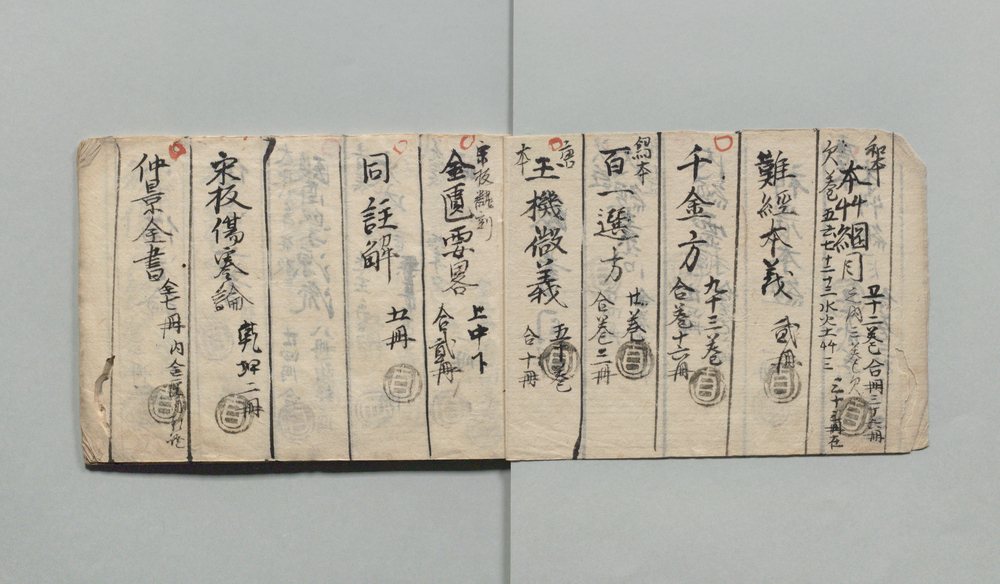 和本
本艸綱目
五十二巻合冊三十六冊
欠巻五六七十二十三水火土
難経本義 貳冊
千金方 九十三巻
合巻十六冊
百一選方
廿巻
合巻二冊
唐本
玉機微義 五十巻
合十冊
宋板翻刻
金匱要畧 上中下
合貳冊
同註解 五冊
宋板傷寒論 乾坤二冊
仲景全書 全七冊 内金匱